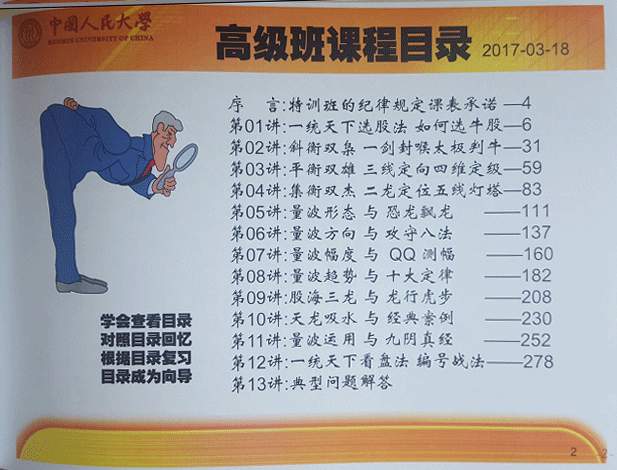 中国人民大学
RENMIN UNIVERSITY OF CHINA
高级班课程目录 2017-03-18
序 言:特训班的纪律规定课表承诺—4
第01讲:一统天下选股法 如何选牛股—6
第02讲:斜衡双枭 一剑封喉太极判牛—31
第03讲:平衡双雄 三线定向四维定级—59
第04讲:集衡双杰 二龙定位五线灯塔—83
第05讲:量波形态 与 恐龙飘龙 ——111
第06讲:量波方向 与 攻守八法 ——137
第07讲:量波幅度 与 QQ 测幅 ——160
第08讲:量波趋势 与 十大定律 ——182
第09讲:股海三龙 与 龙行虎步 ——208
第10讲:天龙吸水 与 经典案例 ——230
第11讲:量波运用 与 九阴真经 ——252
第12讲:一统天下看盘法 编号战法——278
第13讲:典型问题解答
学会查看目录
对照目录回忆
根据目录复习
目录成为向导
2
2